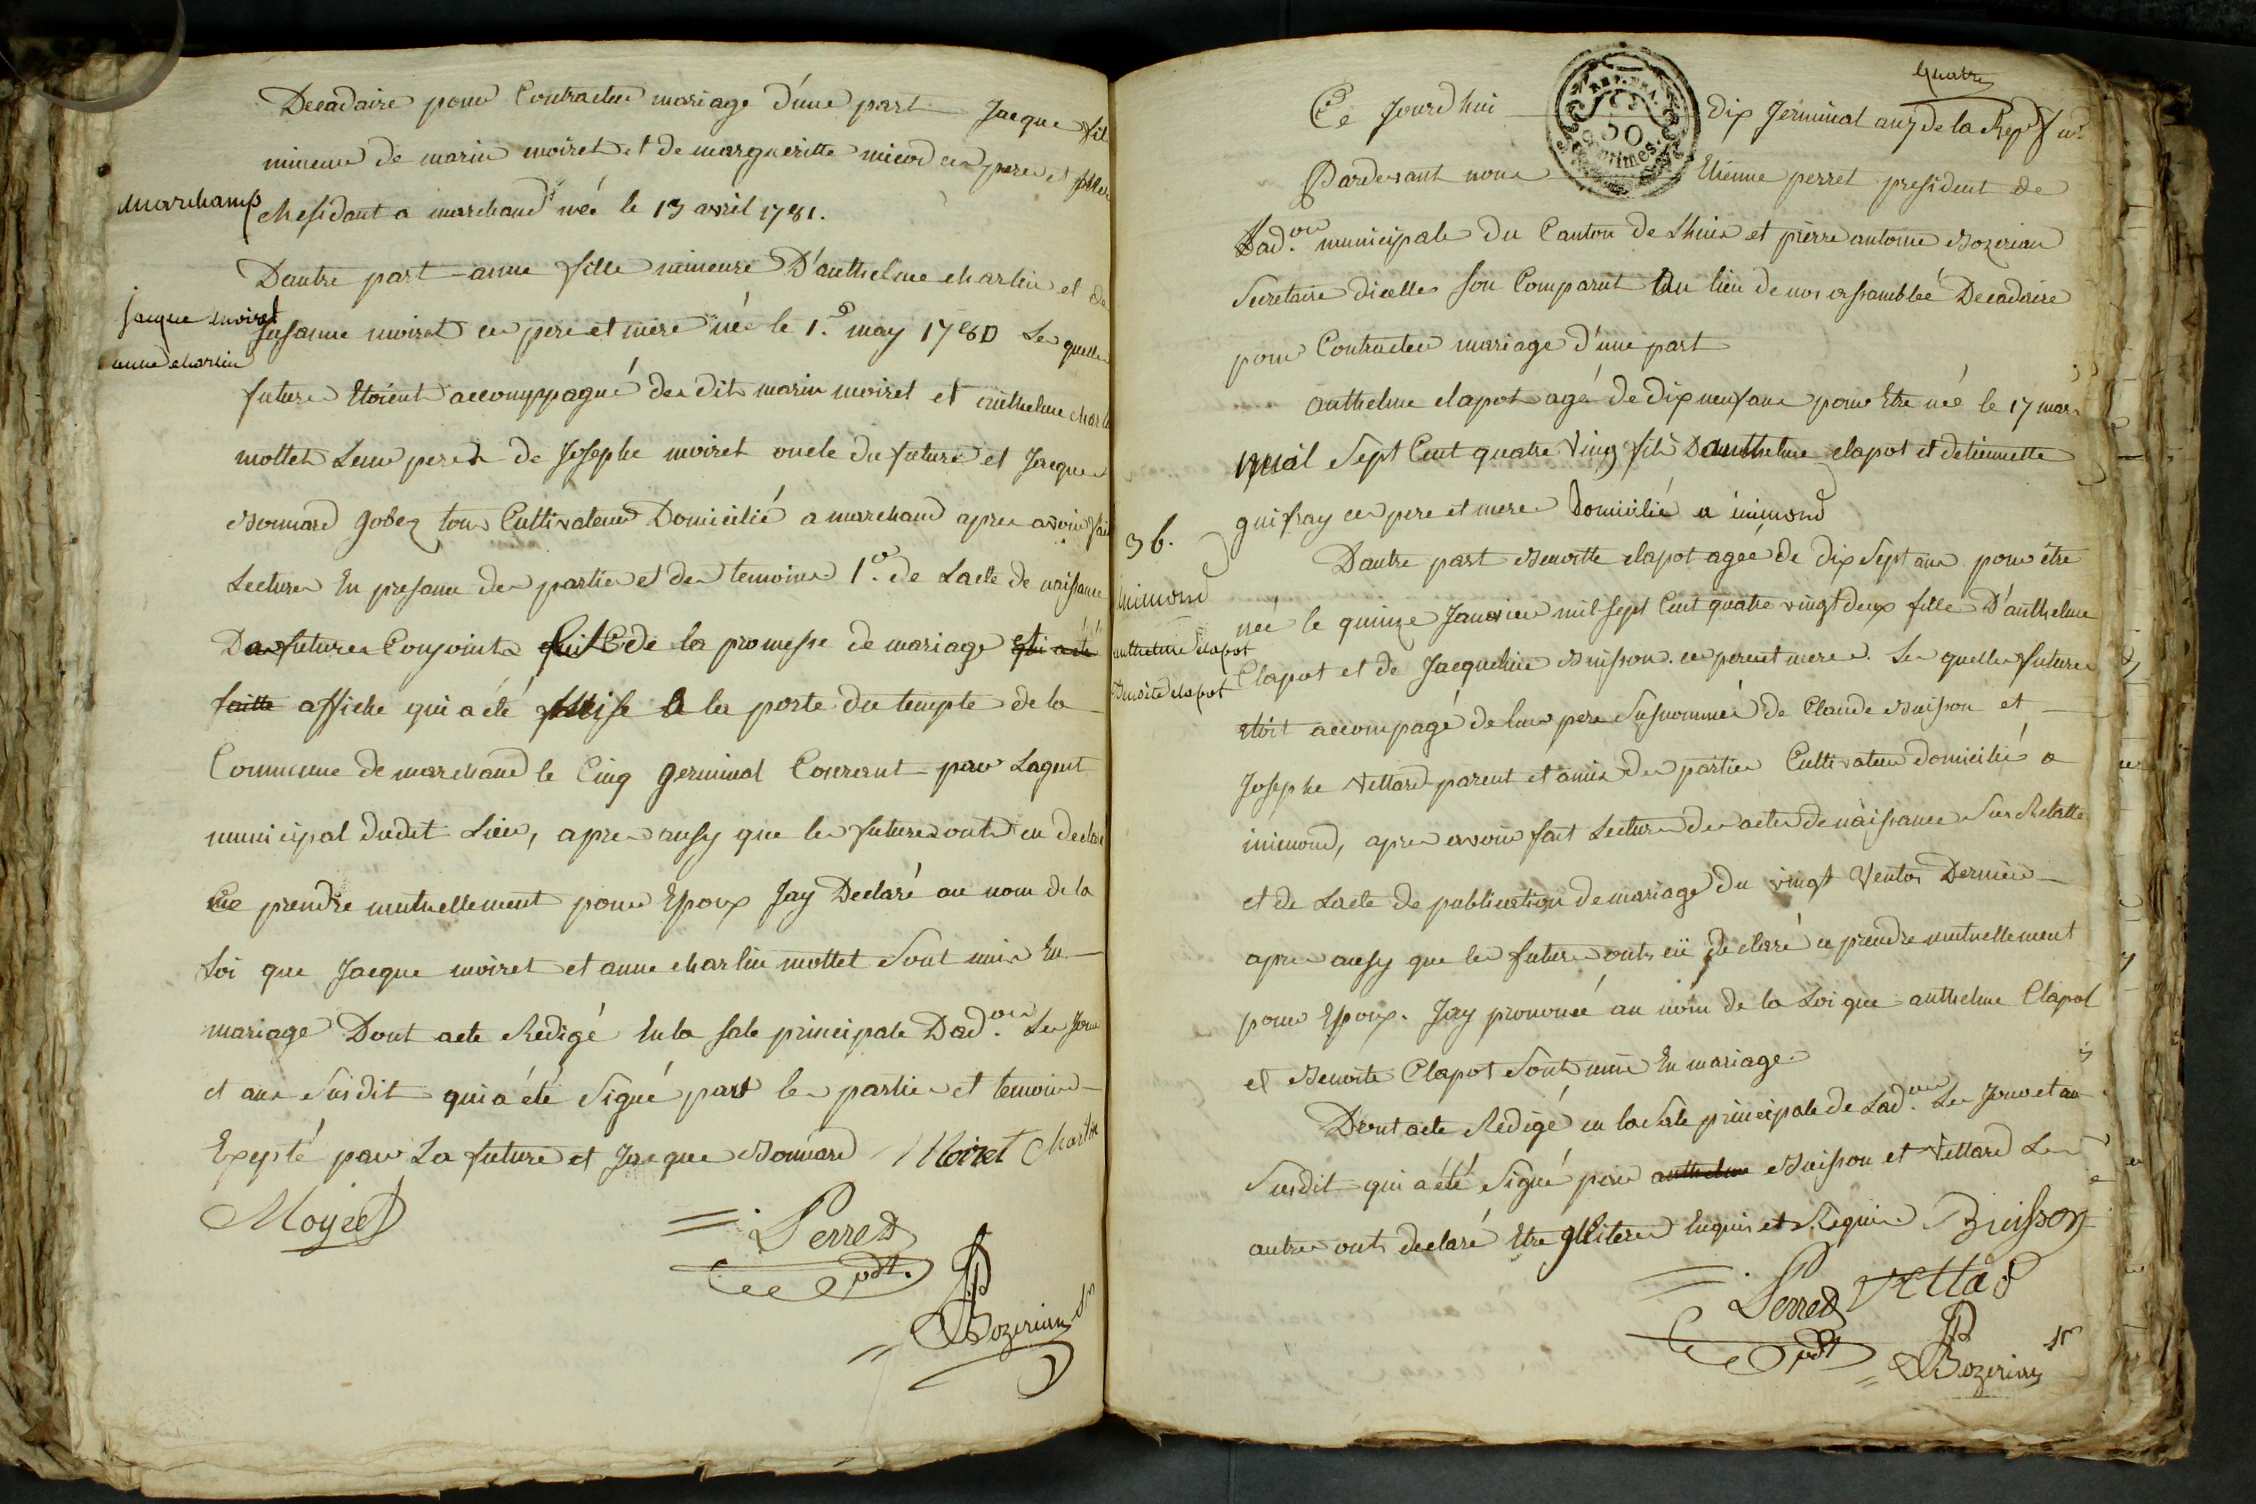 Decadaire pour Contracter mariage d'une part Jacque fils
mineur de marin moiret et de margueritte ces pere et mere
Marchamp
Residant a marchand née le 13 avril 1781.
Dautre part anne fille mineure D'anthelme charlin et de
Jacque moiret
anne charlin
Susanne moiret ces pere et mère née le 1.º may 1780 Les quelles
futurs Etoient accomppagné des dits marin moiret et anthelme charlin
mottet Leurs peres de Josephe moiret oncle du future et Jacque
Bonnard gobez tous Cultivateurs Domicilié a marchand apres avoir fait
Lecture En presance des parties et des temoins 1.º de Lacte de naissance
Des futures Conjoints de la promesse de mariage qui a été
faitte affiche qui a été mise a la porte du temple de la
Commune de marchand le Cinq germinal Courant par Lagent
municipal dudit Lieu, apres ausy que les futures onts eu declaré
ce prendre mutuellement pour Epoux Jay Declaré au nom de la
Loi que Jacque moiret et anne charlin mottet Sont unis En
mariage Dont acte Redigé En la sale principale Dad.on Les Jour
et ans Susdit qui a été Signé part les parties et temoins
Exepté par La future et Jacque Bonnard Moiret Charlin
Moyret
Perret
pdt.
Bozerian Sr
quatre
Ce Jourdhui dix Jerminal an 7 de la Rep.
REP. FRA.
50
Centimes.
Pardevant nous Etienne perret president de
Lad.on municipale du Canton de Lhuis et pierre antoine Bozerian
Secretaire dicelle son Comparut au lieu de nos assamblée Decadaire
pour Contracter mariage d'une part
anthelme clapot agé de dix neuf ans pour Etre née le 17 mars
mil Sept Cent quatre Ving fils Danthelme clapot et detiennette
guifray ces pere et mere Domicilié a inimond
36.
inimond
anthelme clapot
Benoite clapot
Dautre part Benoitte clapot ageé de dix Sept ans pour être
née le quinze Janvier mil sept Cent quatre vingt deux fille D'anthelme
Clapot et de Jacqueline Buisson ces pere et mere. Les quelles futures
etoit accompagé de leurs pere Susnommés de Claude Buisson et
Josephe Vettard parent et amis des parties Cultivateurs domiciliés a
inimond, apres avoir fait Lecture des actes de naissance Sus Relatté
et de Lacte de publication de mariage du vingt Ventos Dernier
apres ausy que les futures onts eü declaré ce prendre mutuellement
pour Epoux. Jay prononcé au nom de la Loi que anthelme Clapot
et Benoite Clapot Sont unis En mariage
Dont acte Redigé en la Sale principale de Lad.on Les Jour et an
Susdit qui a été Signé par anthelme Buisson et Vettard Les
autres onts declaré Etre Enquis et Requis Buisson
Perret Vettard
pdt
Bozerian Sr